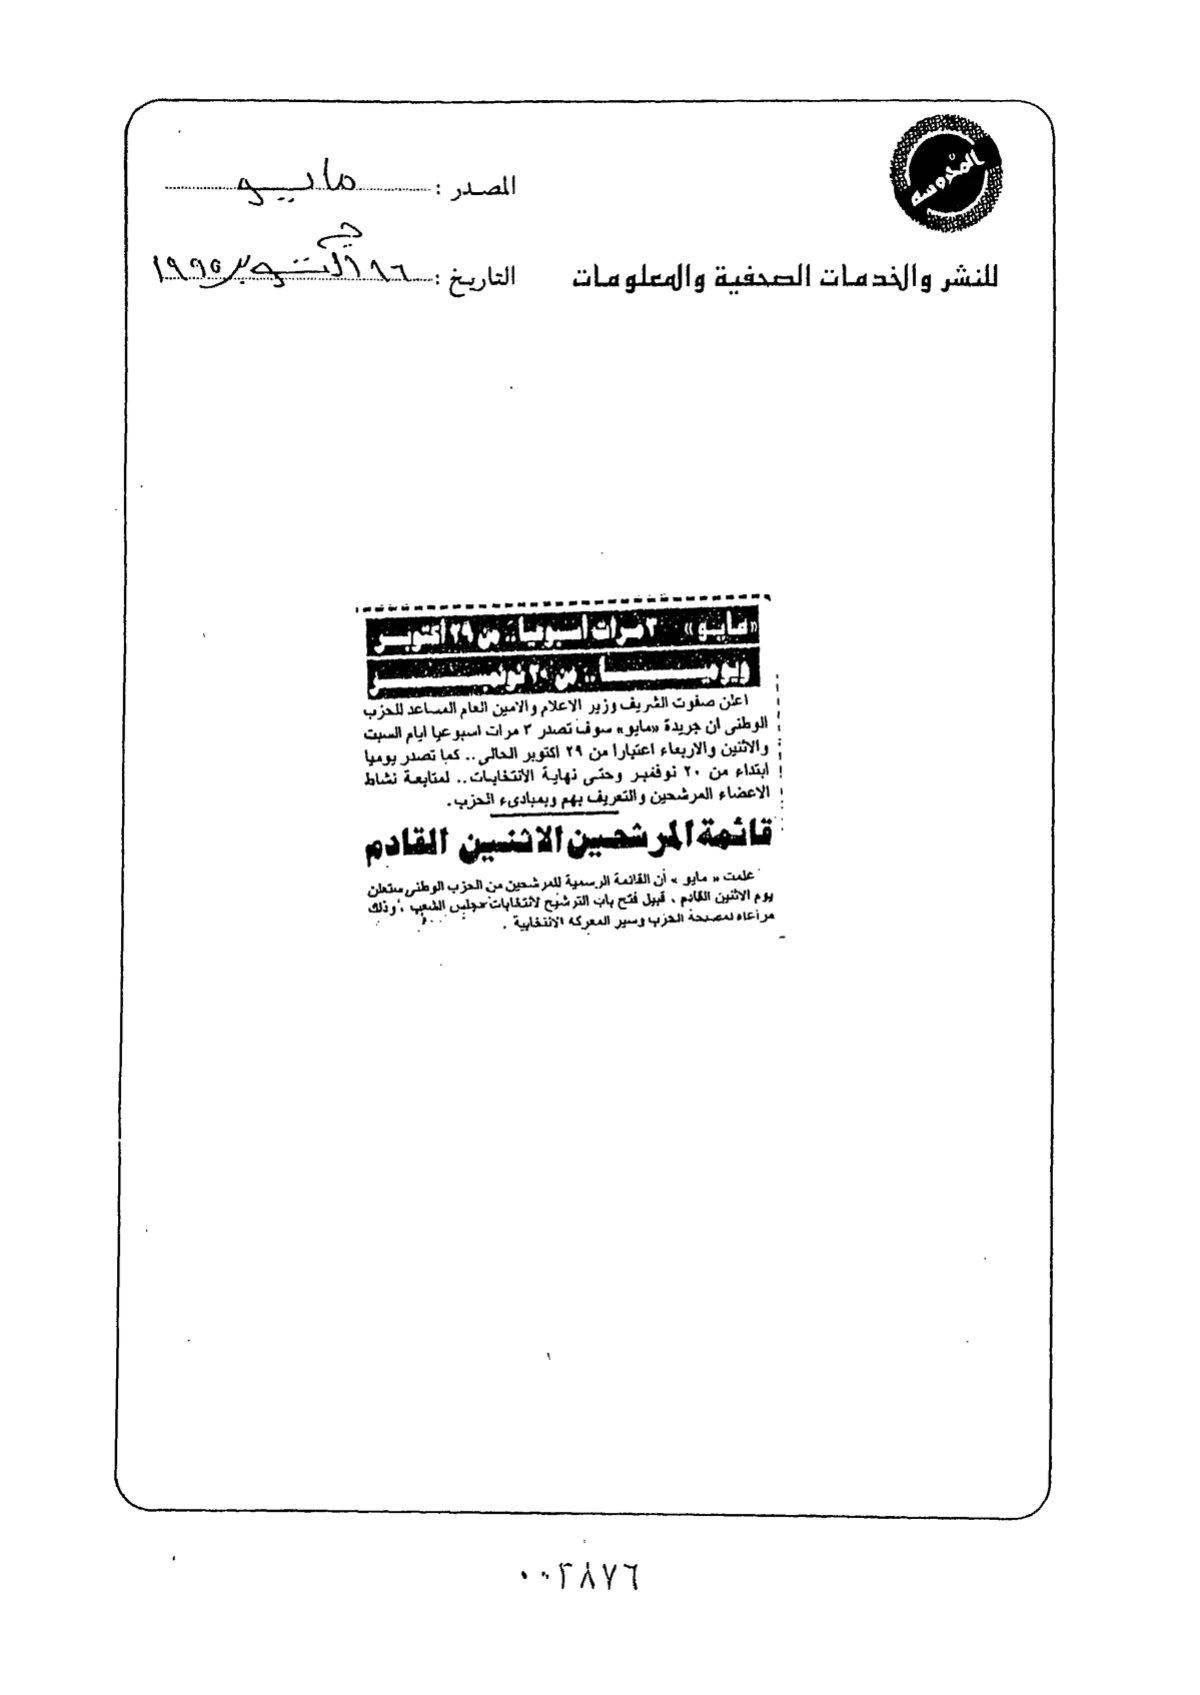 المحروسه
المصدر : مايو
للنشر والخدمات الصحفية والمعلومات
التاريخ : ١٦ اكتوبر ١٩٩٥
«مايو» ٣ مرات أسبوعيا .. من ٢٩ أكتوبر
ويوميا .. من ٢٠ نوفمبر
اعلن صفوت الشريف وزير الاعلام والامين العام المساعد للحزب
الوطنى ان جريدة «مايو» سوف تصدر ٣ مرات اسبوعيا ايام السبت
والاثنين والاربعاء اعتبارا من ٢٩ اكتوبر الحالى .. كما تصدر يوميا
ابتداء من ٢٠ نوفمبر وحتى نهاية الانتخابات .. لمتابعة نشاط
الاعضاء المرشحين والتعريف بهم وبمبادىء الحزب .
قائمة المرشحين الاثنين القادم
علمت « مايو » أن القائمة الرسمية للمرشحين من الحزب الوطنى ستعلن
يوم الاثنين القادم ، قبيل فتح باب الترشيح لانتخابات مجلس الشعب ، وذلك
مراعاة لمصلحة الحزب وسير المعركة الانتخابية .
٠٠٣٨٧٦